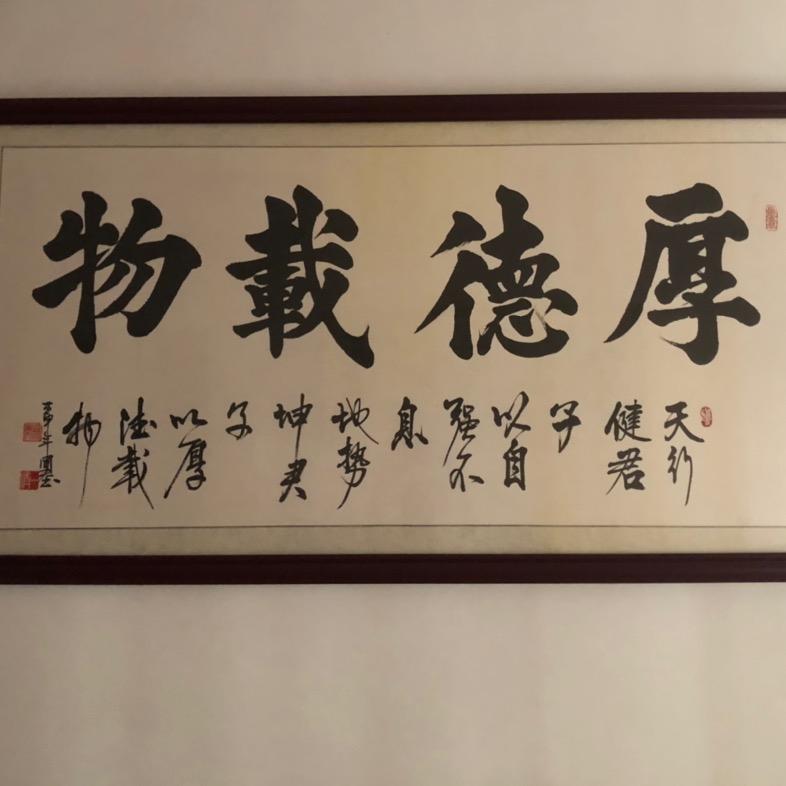 厚德載物
天行
健君
子
以自
强不
息
地势
坤君
子
以厚
德載
物